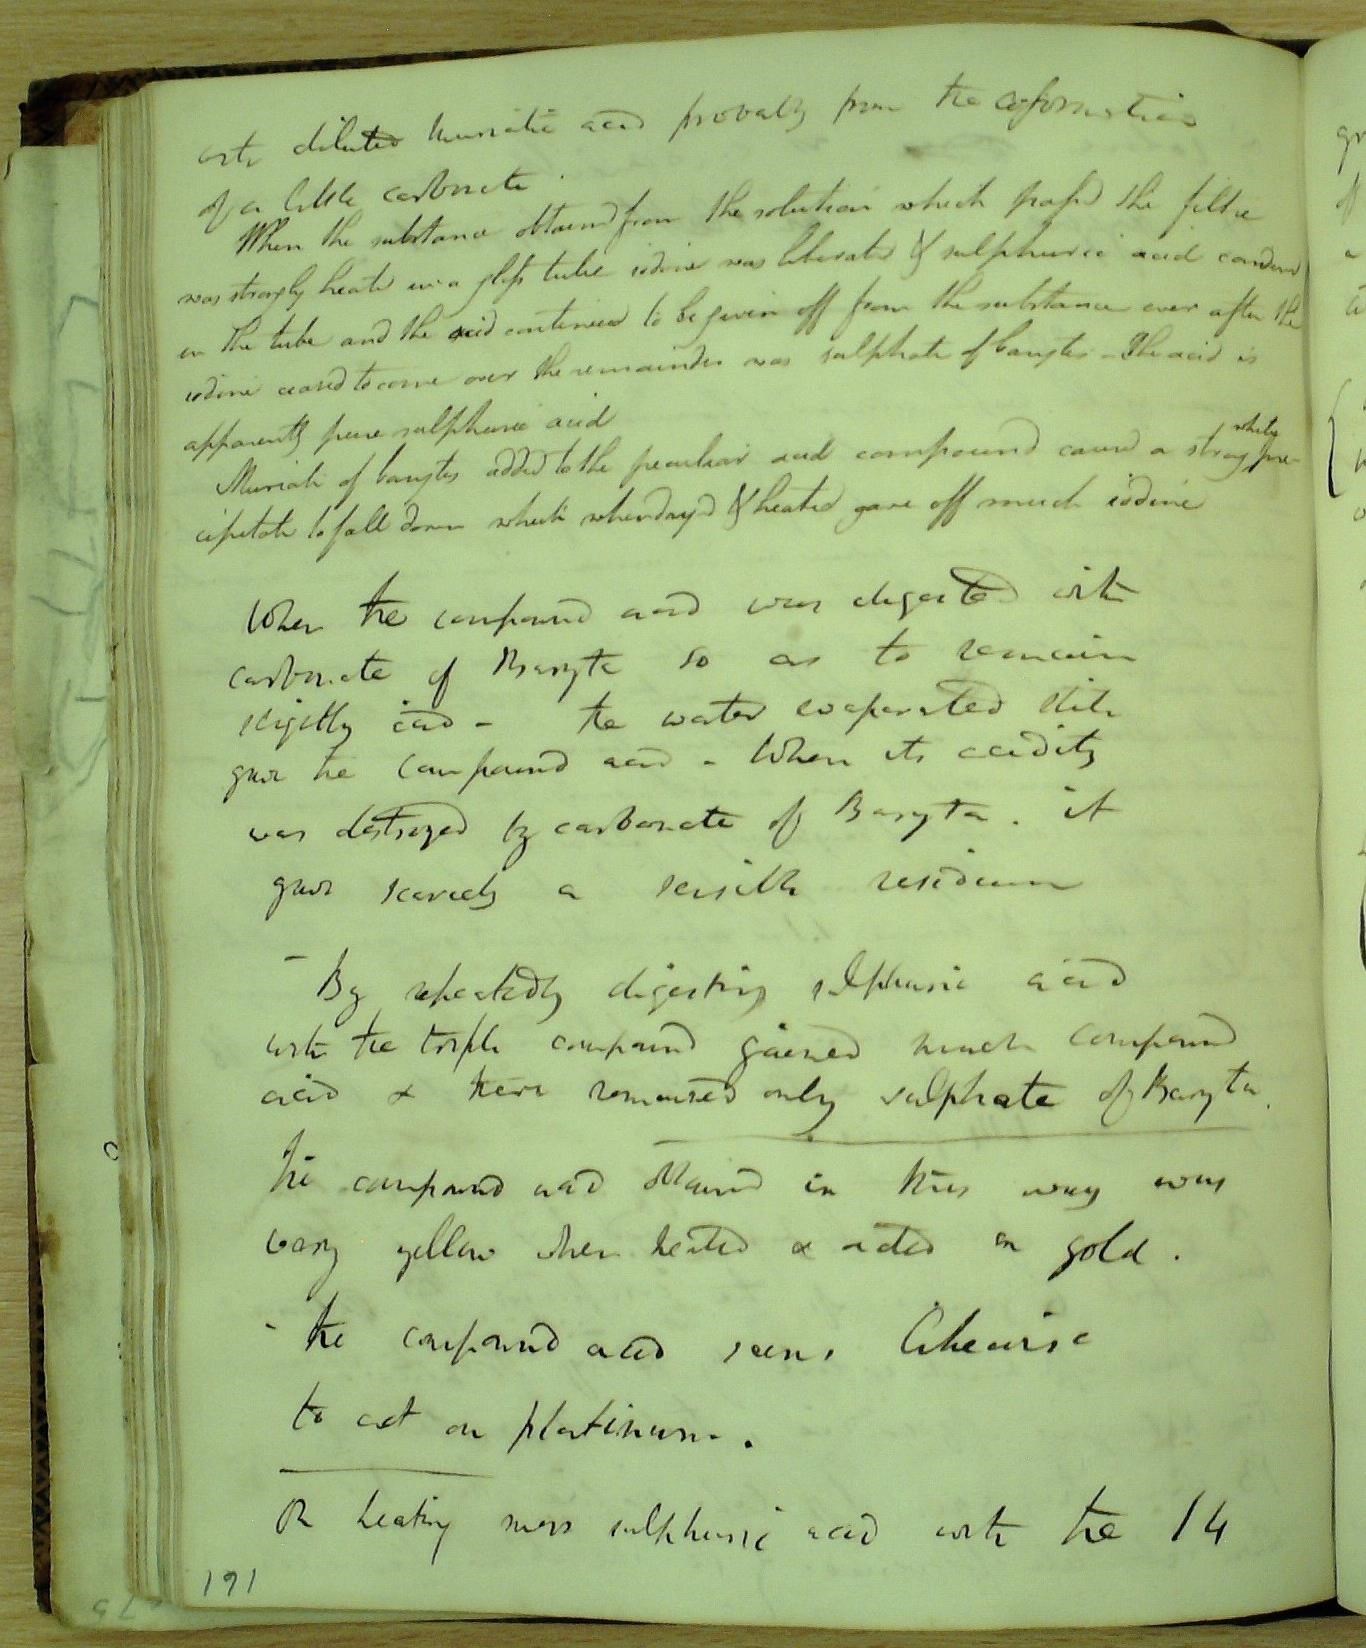 with diluted muriatic acid probably from the coformation
of a little carbonate.
When the substance obtained from the solution which passd the filtre
was strongly heated in a glass tube iodine was liberated & sulphuric acid condensed
in the tube and the acid continued to be given off from the substance even after the
iodine ceased to come over the remainder was sulphate of barytes - The acid is
apparently pure sulphuric acid
whitey
Muriate of barytes added to the peculiar acid compound caused a strong pre-
cipitate to fall down which when dryd & heated gave off much iodine
When the compound acid was digested with
carbonate of Baryta so as to remain
slightly acid - the water evaporated still
gave the compound acid - When its acidity
was destroyed by carbonate of Baryta. it
gave scarcely a sensible residuum
- By repeatedly digesting sulphuric acid
with the triple compound gained much compound
acid & there remained only sulphate of Baryta.
The compound acid obtained in this way was
very yellow when heated & acted on gold.
- the compound acid seems likewise
to act on platinum.
On heating more sulphuric acid with the 14
191